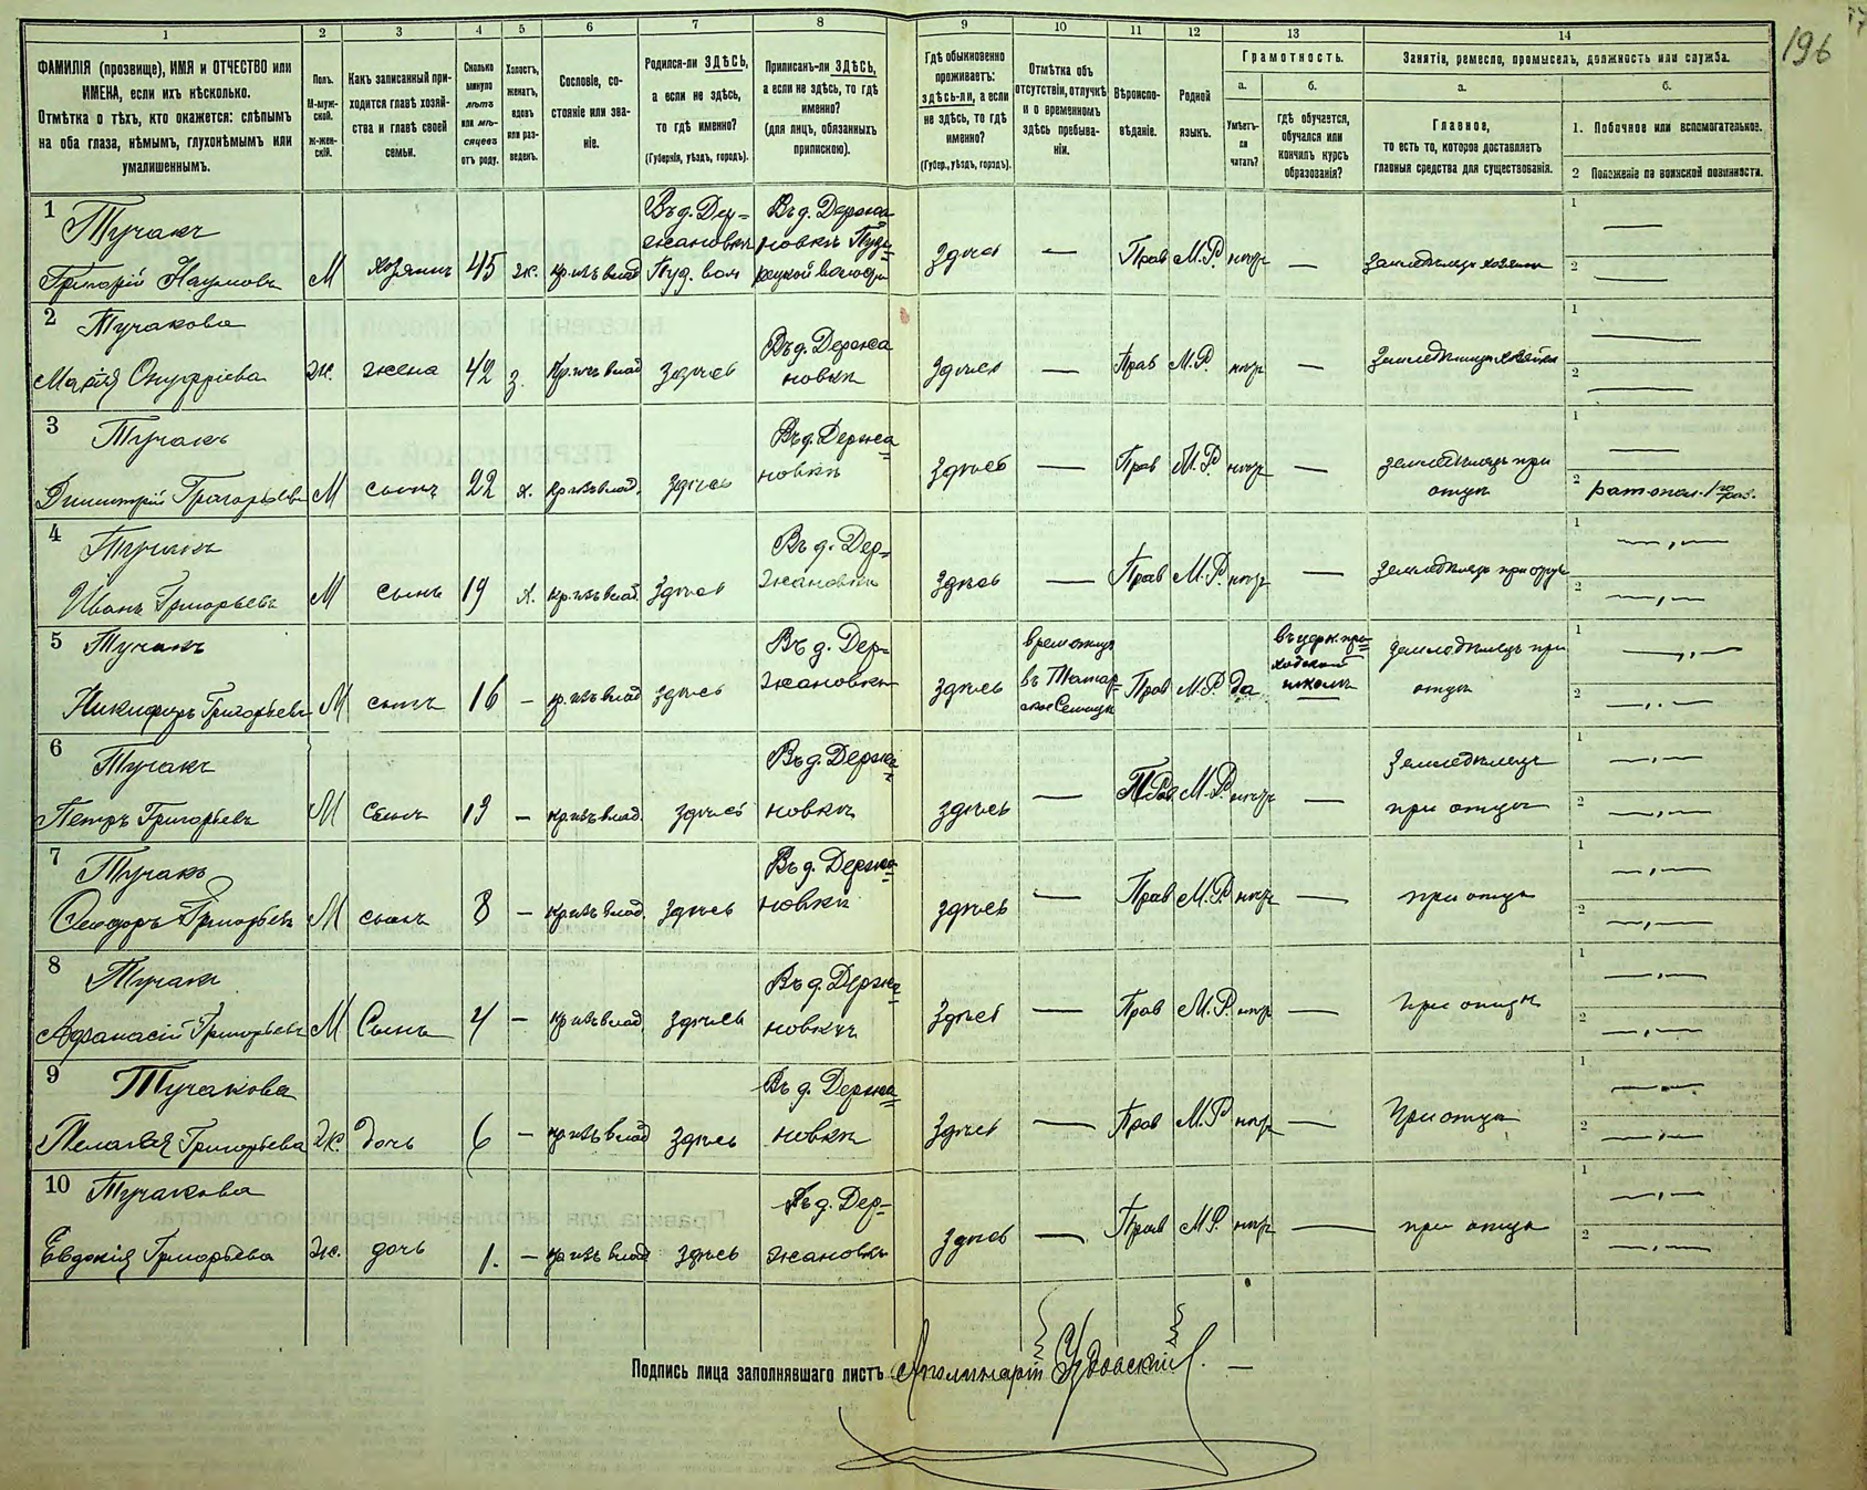 196
1 2 3 4 5 6 7 8 9 10 11 12 13 14
ФАМИЛІЯ (прозвище), ИМЯ и ОТЧЕСТВО или
ИМЕНА, если ихъ нѣсколько.
Отмѣтка о тѣхъ, кто окажется: слѣпымъ
на оба глаза, нѣмымъ, глухонѣмымъ или
умалишеннымъ.
Полъ.
М-муж-
ской.
Ж-жен-
скій.
Какъ записанный при-
ходится главѣ хозяй-
ства и главѣ своей
семьи.
Сколько
минуло
лѣтъ
или мѣ-
сяцевъ
отъ роду.
Холостъ,
женатъ,
вдовъ
или раз-
веденъ.
Сословіе, со-
стояніе или зва-
ніе.
Родился-ли ЗДѢСЬ,
а если не здѣсь,
то гдѣ именно?
(Губернія, уѣздъ, городъ).
Приписанъ-ли ЗДѢСЬ,
а если не здѣсь, то гдѣ
именно?
(для лицъ, обязанныхъ
припискою).
Гдѣ обыкновенно
проживаетъ:
ЗДѢСЬ-ли, а если
не здѣсь, то гдѣ
именно?
(Губер., уѣздъ, городъ).
Отмѣтка объ
отсутствіи, отлучкѣ
и о временномъ
здѣсь пребыва-
ніи.
Вѣроиспо-
вѣданіе.
Родной
языкъ.
Грамотность.
а.
Умѣетъ-
ли
читать?
б.
гдѣ обучается,
обучался или
кончилъ курсъ
образованія?
Занятіе, ремесло, промыселъ, должность или служба.
а.
Главное,
то есть то, которое доставляетъ
главныя средства для существованія.
б.
1. Побочное или вспомогательное.
2 Положеніе по воинской повинности.
1 Тучакъ
Григорій Наумовъ М хозяинъ 45 ж. кр. изъ влад Въ д. Дер-
жановки Пуд. вол Въ д. Держа
новки здѣсь — Прав М.Р. нѣтъ — земледѣлецъ хозяинъ 1 — 2 —
2 Тучакова
Марія Онуфріева Ж. жена 42 з. Кр. изъ влад здѣсь Въ д. Держа
новки здѣсь — Прав М.Р. нѣтъ — 1 — 2 —
3 Тучакъ
Димитрій Григорьевъ М сынъ 22 х. Кр. изъ влад. здѣсь Въ д. Держа
новки здѣсь — Прав М.Р. нѣтъ — земледѣлецъ при
отцѣ 1 — 2
4 Тучакъ
Иванъ Григорьевъ М сынъ 19 х. кр. изъ влад. здѣсь Въ д. Дер-
жановки здѣсь — Прав М.Р. нѣтъ — земледѣлецъ при отцѣ 1 —„— 2 —„—
5 Тучакъ
Никифоръ Григорьевъ М сынъ 16 — кр. изъ влад здѣсь Въ д. Дер-
жановки здѣсь Прав М.Р. да въ церк. при-
ходской
школѣ земледѣлецъ при
отцѣ 1 —„— 2 —„—
6 Тучакъ
Петръ Григорьевъ М Сынъ 13 — кр. изъ влад. здѣсь Въ д. Держа-
новки здѣсь — Прав М.Р. нѣтъ — Земледѣлецъ
при отцѣ 1 —„— 2 —„—
7 Тучакъ
Ѳеодоръ Григорьевъ М сынъ 8 — кр. изъ влад. здѣсь Въ д. Держа-
новки здѣсь — Прав М.Р. нѣтъ — при отцѣ 1 —„— 2 —„—
8 Тучакъ
Афанасій Григорьевъ М Сынъ 4 — кр. изъ влад. здѣсь Въ д. Держа-
новки здѣсь — Прав М.Р. нѣтъ — при отцѣ 1 —„— 2 —„—
9 Тучакова
Пелагея Григорьева Ж. дочь 6 — кр. изъ влад здѣсь Въ д. Держа-
новки здѣсь — Прав М.Р. нѣтъ — При отцѣ 1 —„— 2 —„—
10 Тучакова
Евдокія Григорьева Ж. дочь 1. — кр. изъ влад здѣсь Въ д. Дер-
жановки здѣсь — Прав М.Р. нѣтъ — при отцѣ 1 —„— 2 —„—
Подпись лица заполнявшаго листъ Аполинарій